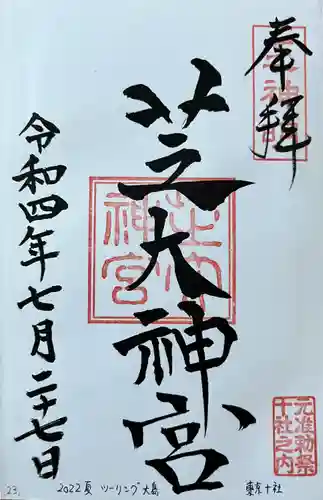 奉拝
芝大神宮
令和四年七月二十七日
元准勅祭
十社之内
23.
2022夏 ツーリング大島
東京十社